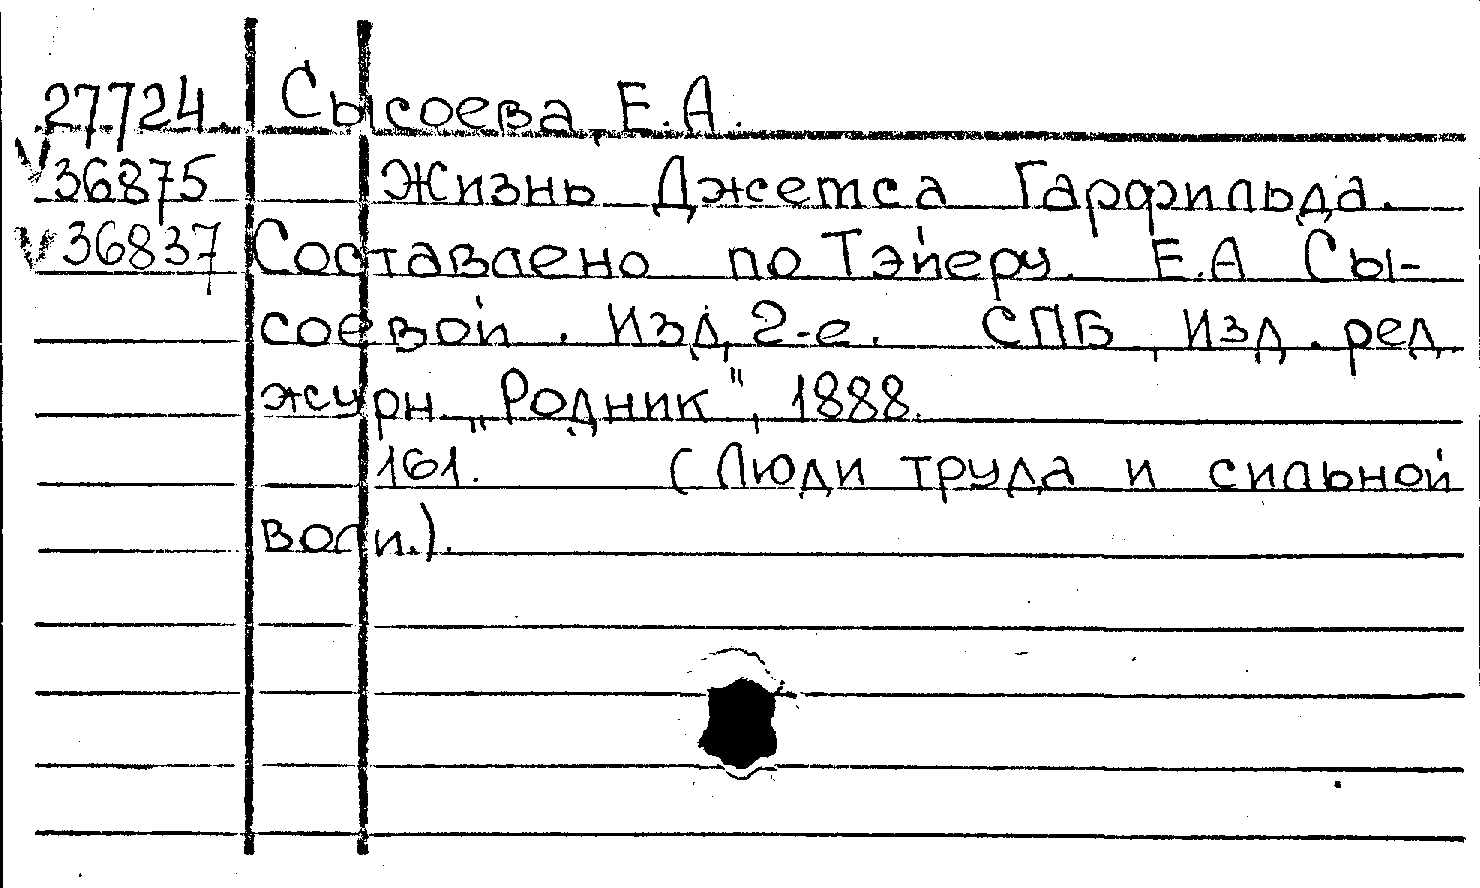 27724. Сысоева, Е.А.
V 36875 Жизнь Джемса Гарфильда.
V 36837 Составлено по Тэйеру. Е.А Сы-
соевой. Изд, 2-е. СПБ, Изд. ред
журн „Родник", 1888.
161. (Люди труда и сильной
воли.).